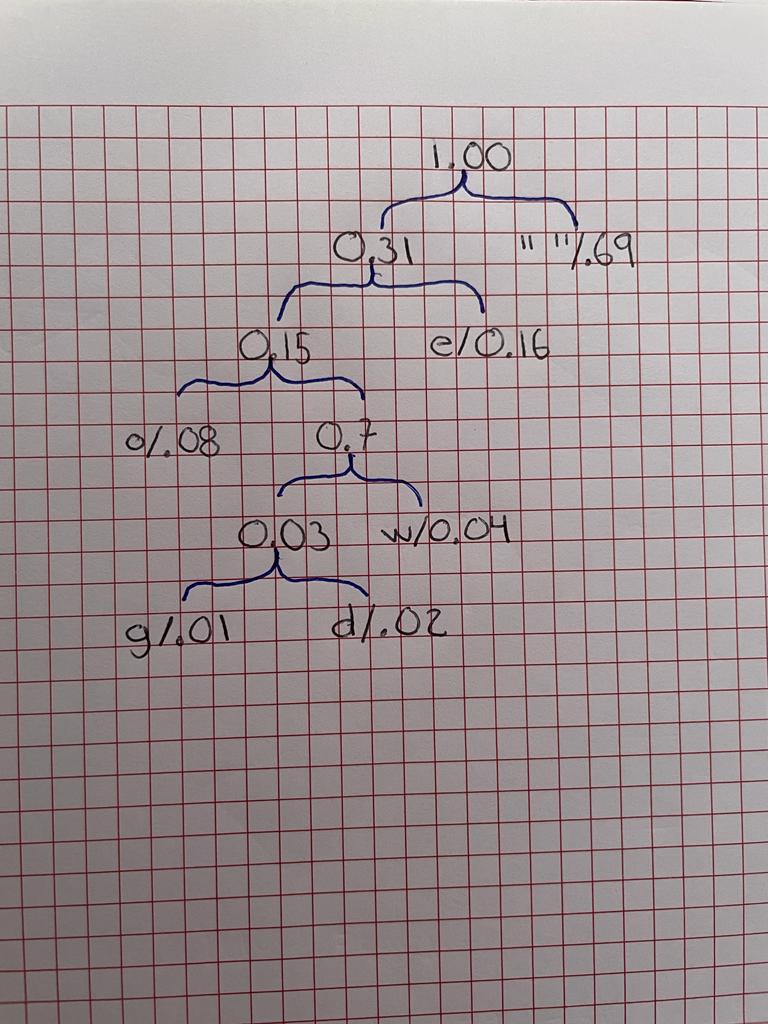 1.00
0.31 " "/.69
0.15 e/0.16
o/.08 0.7
0.03 w/0.04
g/.01 d/.02